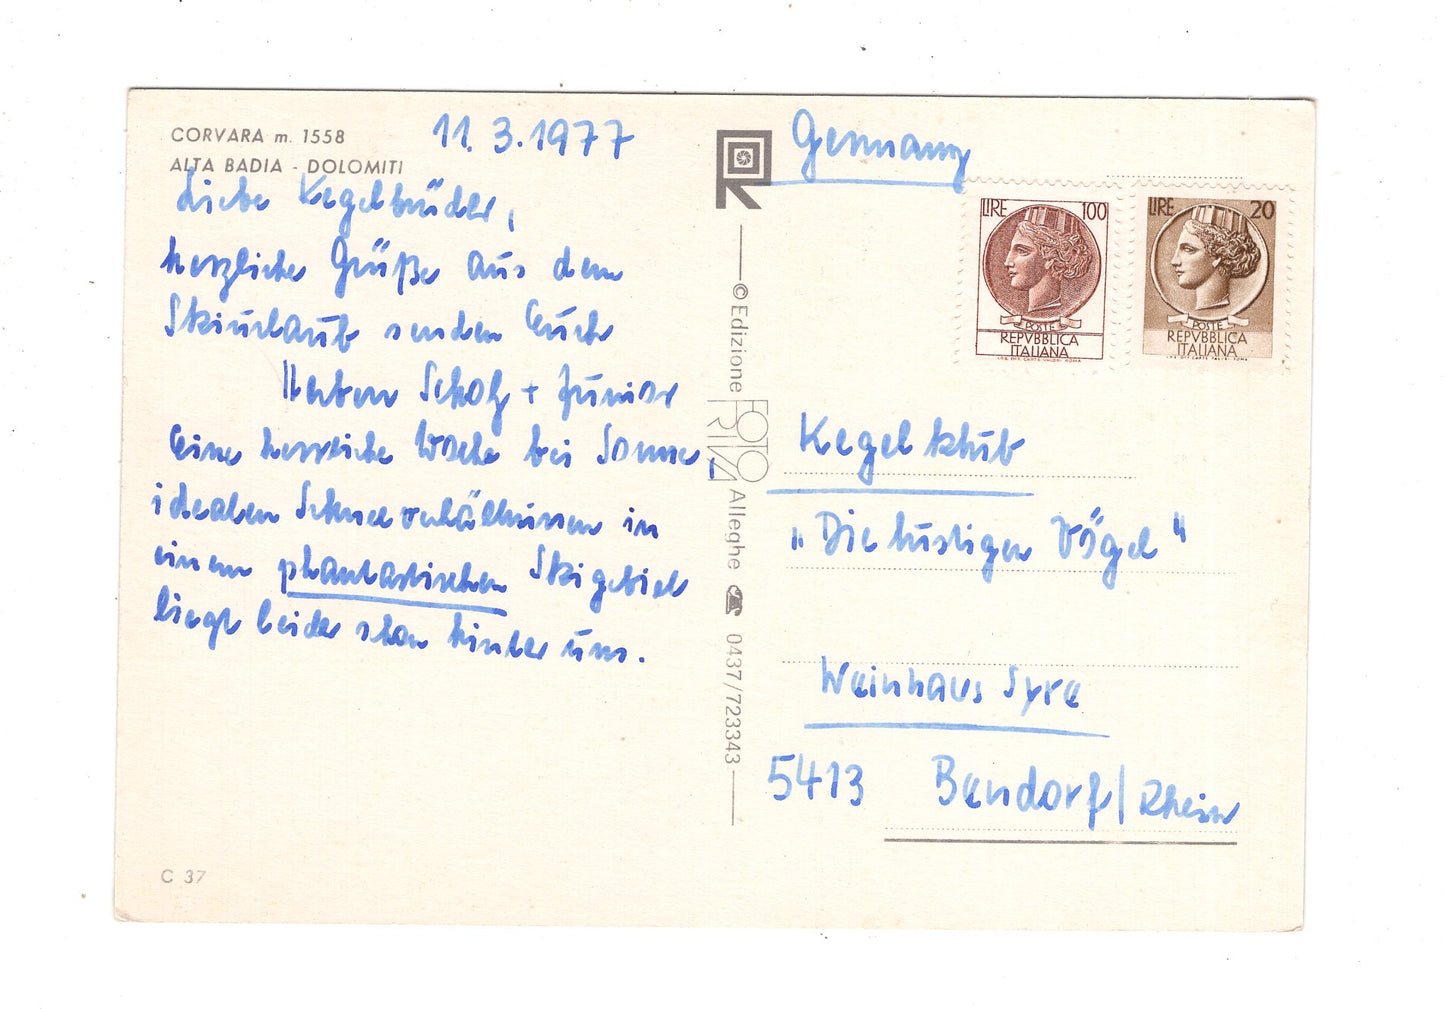 CORVARA m. 1558
ALTA BADIA - DOLOMITI
11.3.1977
Liebe Kegelbrüder,
herzliche Grüße aus dem
Skiurlaub senden Euch
Scholz + Junior
Eine herrliche Woche bei Sonne,
idealen Schneeverhältnissen in
einem phantastischen Skigebiet
liegt leider schon hinter uns.
C 37
© Edizione FOTO RIVA Alleghe ☎ 0437/723343
Germany
LIRE 100
POSTE
REPVBBLICA
ITALIANA
LIRE 20
POSTE
REPVBBLICA
ITALIANA
Kegelklub
„Die lustigen Vögel"
Weinhaus Syre
5413 Bendorf/Rhein